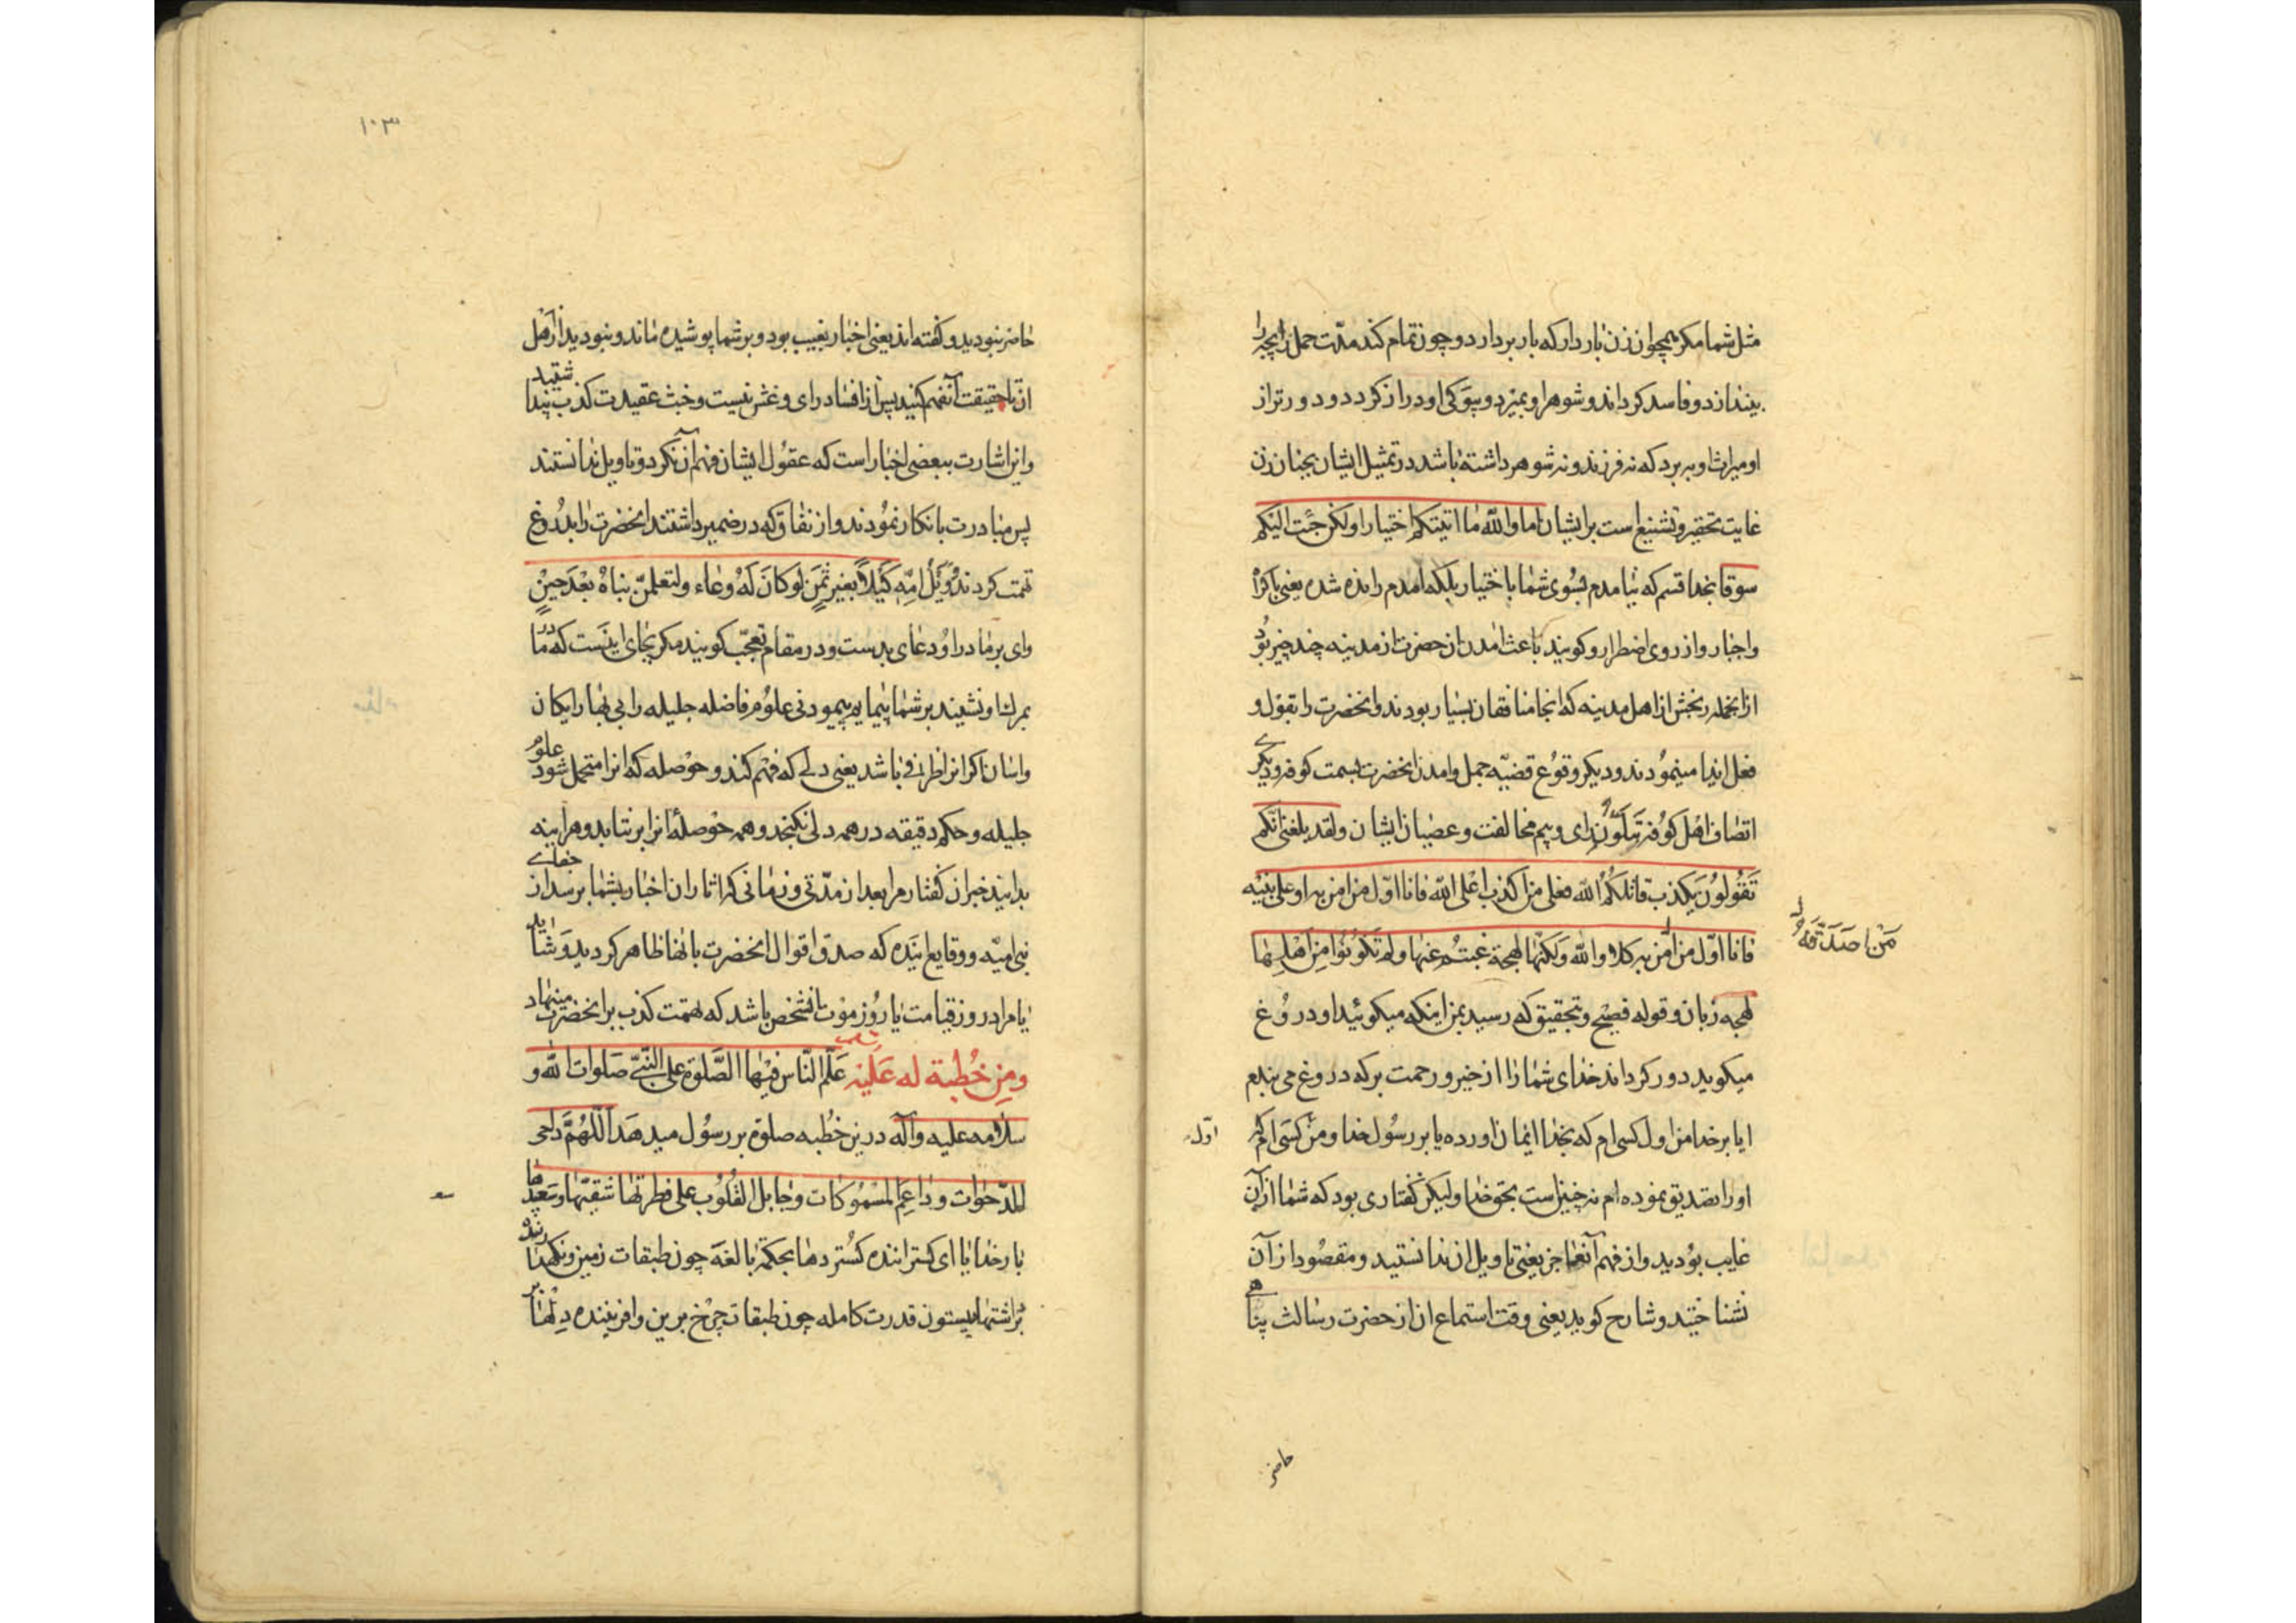 مثل شما مکر همچو ان زن باردار که بار بردارد و چون تمام کند مدّت حمل را بچه را
بیندازد و فاسد کرداند و شوهر او بمیرد و بیوکی او دراز کردد و دورتر از
او میراث او ببرد که نه فرزند و نه شوهر داشته باشد در تمثیل ایشان بچنان زن
غایت تحقیر و تشنیع است بر ایشان اما والله ما اتیتکم اختیارا ولکن جئت الیکم
سوقا بخدا قسم که نیامدم بسوی شما باختیار بلکه امدم رانده شده یعنی باکراه
و اجبار و از روی اضطرار و کویند باعث امدن ان حضرت از مدینه چند چیز بود
از انجمله رنجش از اهل مدینه که انجا منافقان بسیار بودند و انحضرت را بقول و
فعل ایذا مینمودند و دیکر وقوع قضیّه جمل و امدن انحضرت بسمت کوفه و دیکری
اتصاف اهل کوفه بتلوّن رای و بیم مخالفت و عصیان ایشان ولقد بلغنی انّکم
تَقُولُونَ یکذب قاتلکُمُ الله فعلی من اکذب اعلی الله فانا اوّل من امن به او علی نبیّه
مَنْ صَدَّقَهُ
فانا اوّل من امن به کلا والله ولکنّها لهجة غبتُم عنها ولم تَکُونُوا مِن اَهْلِها
لهجه زبان و قوله فصیح و تحقیق که رسید بمن اینکه میکوئید او دروغ
میکوید دور کرداند خدای شما را از خیر و رحمت بر که دروغ می بندم
ایا بر خدا من اول کسی ام که بخدا ایمان اورده یا بر رسول خدا و من کسی ام که
اوّل
او را تصدیق نموده ام نه چنین است بحق خدا ولیکن کفتاری بود که شما از آن
غایب بودید و از فهم آنها عاجز یعنی تاویل ان ندانستید و مقصود از آن
نشناختید و شارح کوید یعنی وقت استماع ان از حضرت رسالت پناهی
حاضر
۱۰۳
حاضر نبودید و کفته اند یعنی اخبار بغیب بود و بر شما پوشیده ماند و نبودید از اهل
ان تا حقیقت آنفهم کنید پس از افساد رای و غش نیست و خبث عقیدت کذب پنداشتید
و این اشارت ببعضی اخبار است که عقول ایشان فهم آن نکرد و تاویل ندانستند
پس مبادرت بانکار نمودند و از نفاق که در ضمیر داشتند انحضرت را بدروغ
تهمت کردند وَیْلُ امِّهِ کَیْلاً بغیر ثَمَنٍ لو کانَ لَهُ وعاء ولتعلمنّ نباهُ بَعْدَ حینٍ
وای بر مادر او دعای بدست و در مقام تعجّب کویند مکر بجای اینست که مادر
بمرك او نشیند بر شما پیمایم پیمودنی علوم فاضله جلیله را بی بها و رایکان
و اسان اکر انرا ظرفی باشد یعنی دلی که فهم کند و حوصله که انرا متحمل شود علوم
جلیله و حکم دقیقه در همه دلی نکنجد و همه حوصله انرا بر نتابد و هراینه
بدانید خبر ان کفتار مرا بعد از مدّتی و زمانی که اثار ان اخبار بشما برسد از جفای
بنی امیّه و وقایع اینده که صدق اقوال انحضرت بانها ظاهر کردید و شاید
یا مراد روز قیامت یا روز موت ان شخص باشد که تهمت کذب بر انحضرت مینهاد
ومِن خُطبة له عَلَیْهِ السلام عَلَّمَ النّاس فیْها الصَّلوة علی النَّبیّ صَلوات الله و
سلامه علیه وآله درین خطبه صلوة بر رسول میدهد اللّهُمَّ داحی
المدّحوات وداعِمَ المَسْمُوکات وجابل القُلُوب علی فطرتها شقیّها وسَعیدها
بار خدایا ای کستراننده کسترده‌ها بحکمت بالغه چون طبقات زمین و نکهدارنده
بر اشتها بستون قدرت کامله چون طبقات چرخ برین و افریننده دلها بر